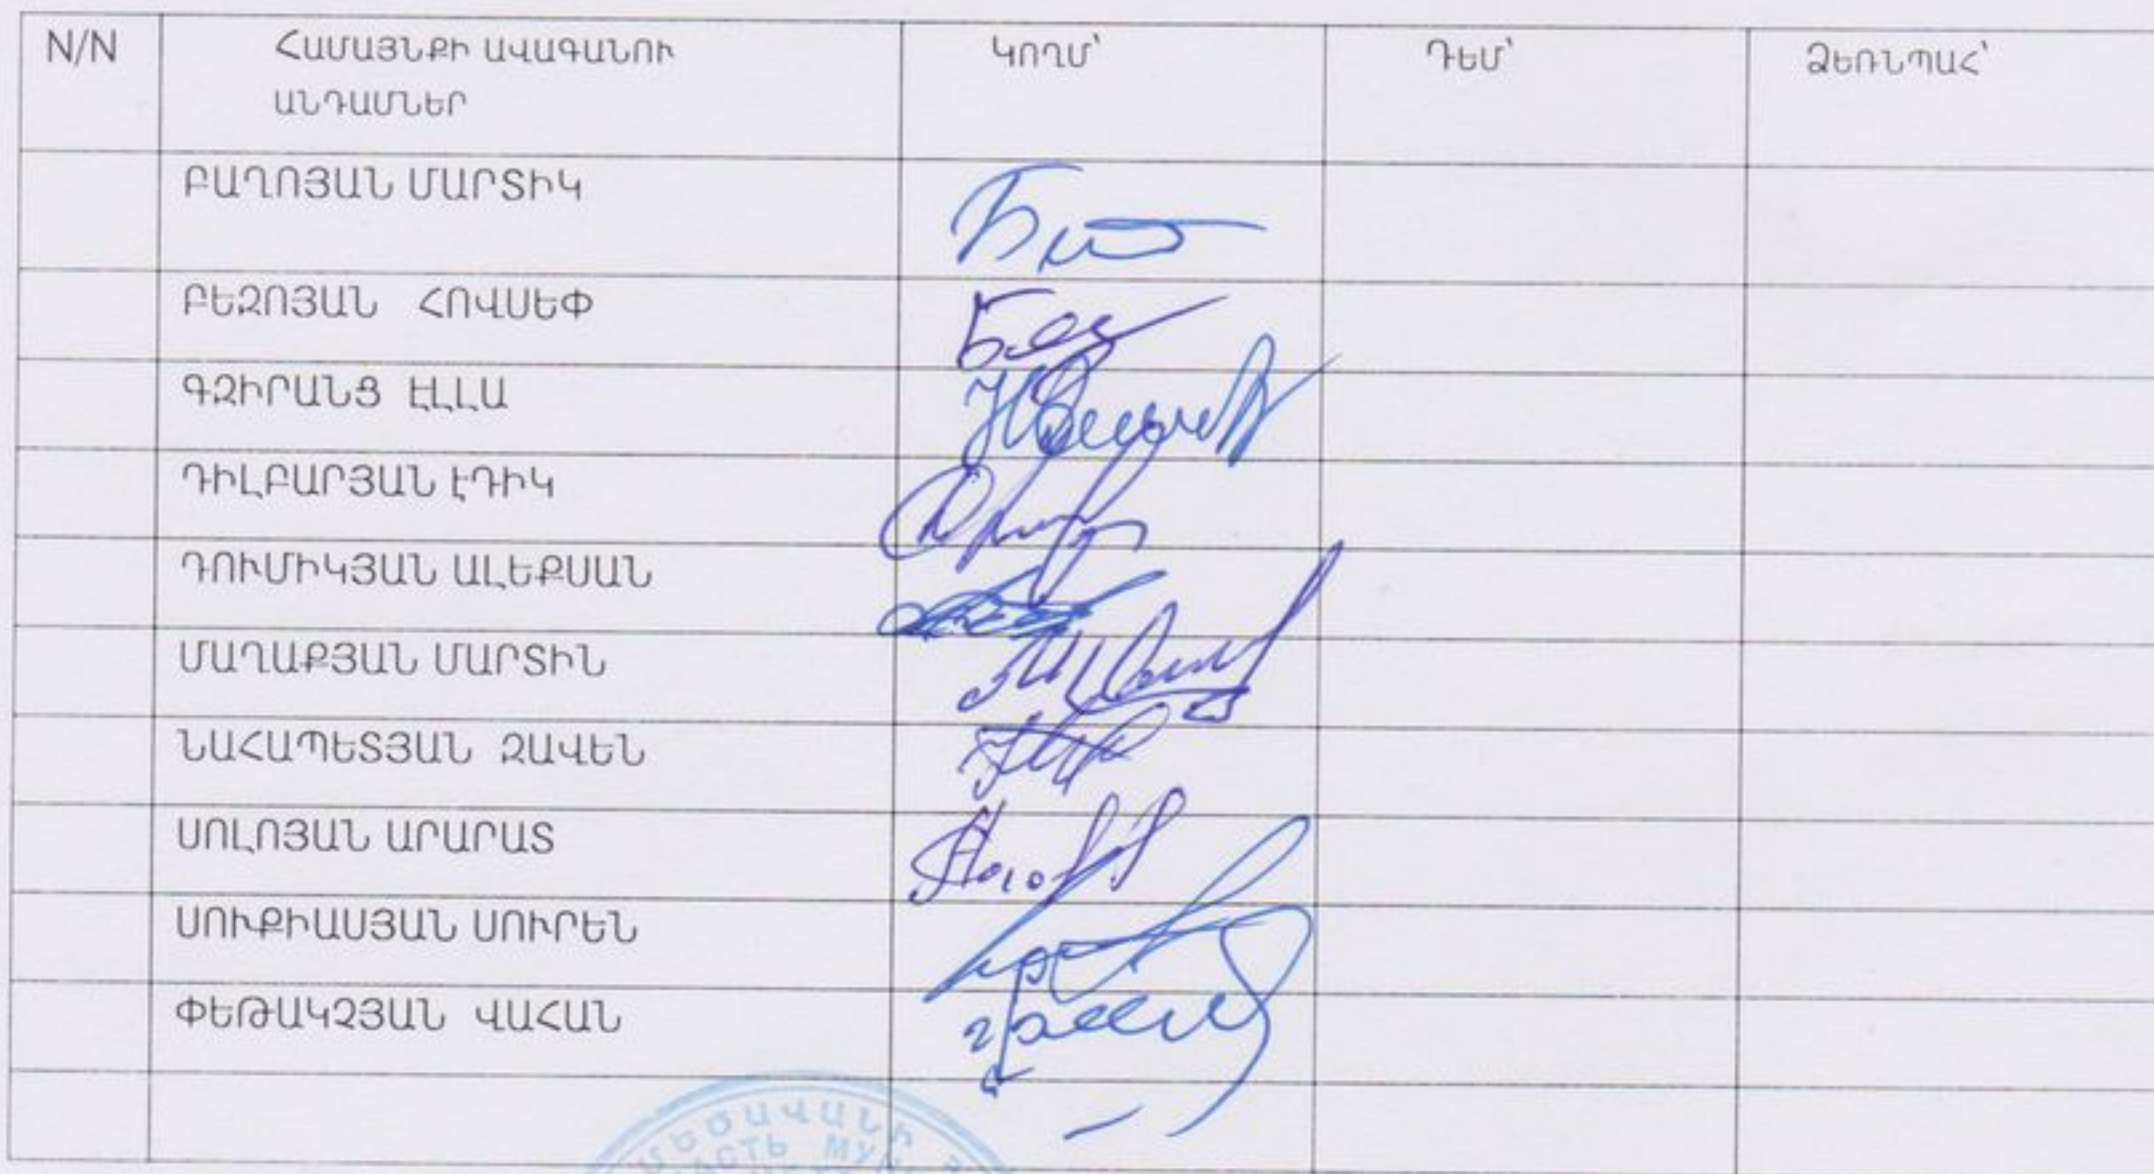 N/N ՀԱՄԱՅՆՔԻ ԱՎԱԳԱՆՈՒ ԿՈՂՄ՝ ԴԵՄ՝ ՁԵՌՆՊԱՀ՝
ԱՆԴԱՄՆԵՐ
ԲԱՂՈՅԱՆ ՄԱՐՏԻԿ
ԲԵԶՈՅԱՆ ՀՈՎՍԵՓ
ԳԶԻՐԱՆՑ ԷԼԼԱ
ԴԻԼԲԱՐՅԱՆ ԷԴԻԿ
ԴՈՒՄԻԿՅԱՆ ԱԼԵՔՍԱՆ
ՄԱՂԱՔՅԱՆ ՄԱՐՏԻՆ
ՆԱՀԱՊԵՏՅԱՆ ԶԱՎԵՆ
ՍՈԼՈՅԱՆ ԱՐԱՐԱՏ
ՍՈՒՔԻԱՍՅԱՆ ՍՈՒՐԵՆ
ՓԵԹԱԿՉՅԱՆ ՎԱՀԱՆ